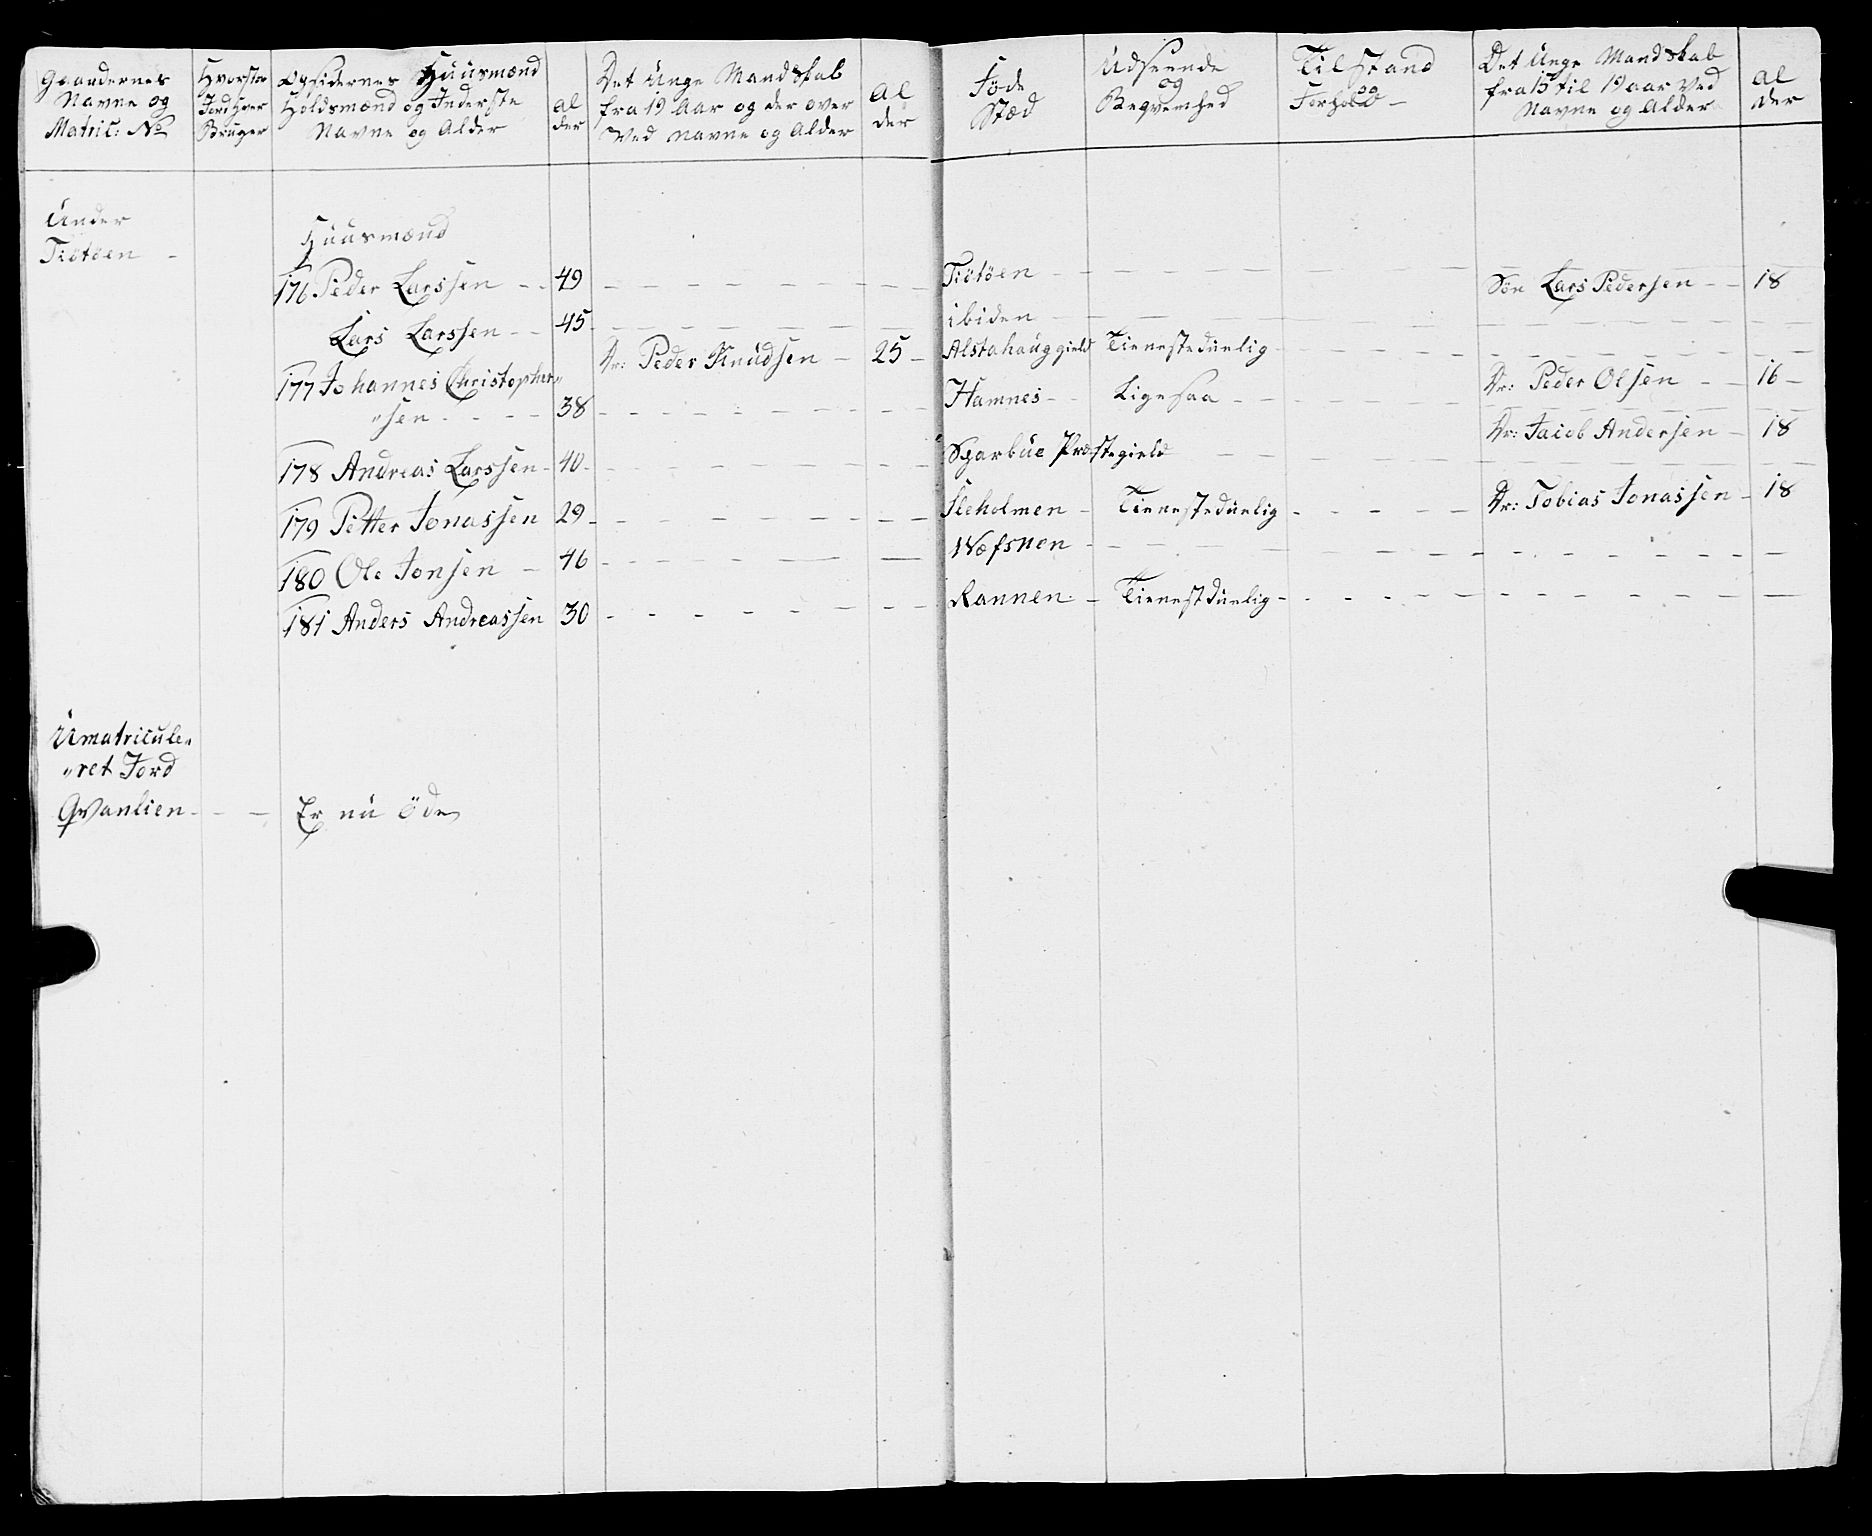 Gaardernes
Navne og
Matric: No
Hvorstor
Jord hver
Bruger
Opsidernes Huusmænd
Holdsmænd og Inderste
Navne og Alder
Al
der
Det Unge Mandskab
fra 19 Aar og der over
Ved navne og Alder
Al
der
Føde
Stæd
Udseende
og
Beqvemhed
Tilstand
og
Forhold
Det Unge Mandskab
fra 15 til 19 aar Ved
Navne og Alder
Al
der
Under
Tiötöen -
Huusmænd
176 Peder Larssen - - 49 Tiötöen Søn Lars Pedersen - - 18
Lars Larssen - - 45 ibiden
Dr: Peder Knudsen - 25 - Alstahaug gield Tienestedünlig
177 Johannes Christopher„
„sen - - - - 38 Hamnes - - Ligesaa - Dr: Peder Olsen - - 16 -
Dr: Jacob Andersen - 18
178 Andreas Larssen - 40 - Sparbue Præstegield
179 Petter Jonassen 29 - Sleholmen - Tienestedünlig - Dr: Tobias Jonassen - 18
180 Ole Jonsen - 46 Wefsnen
181 Anders Andreassen 30 Rannen - Tienestdünlig -
Umatricule„
„ret Jord
Qvanlien - - - Er nü öde